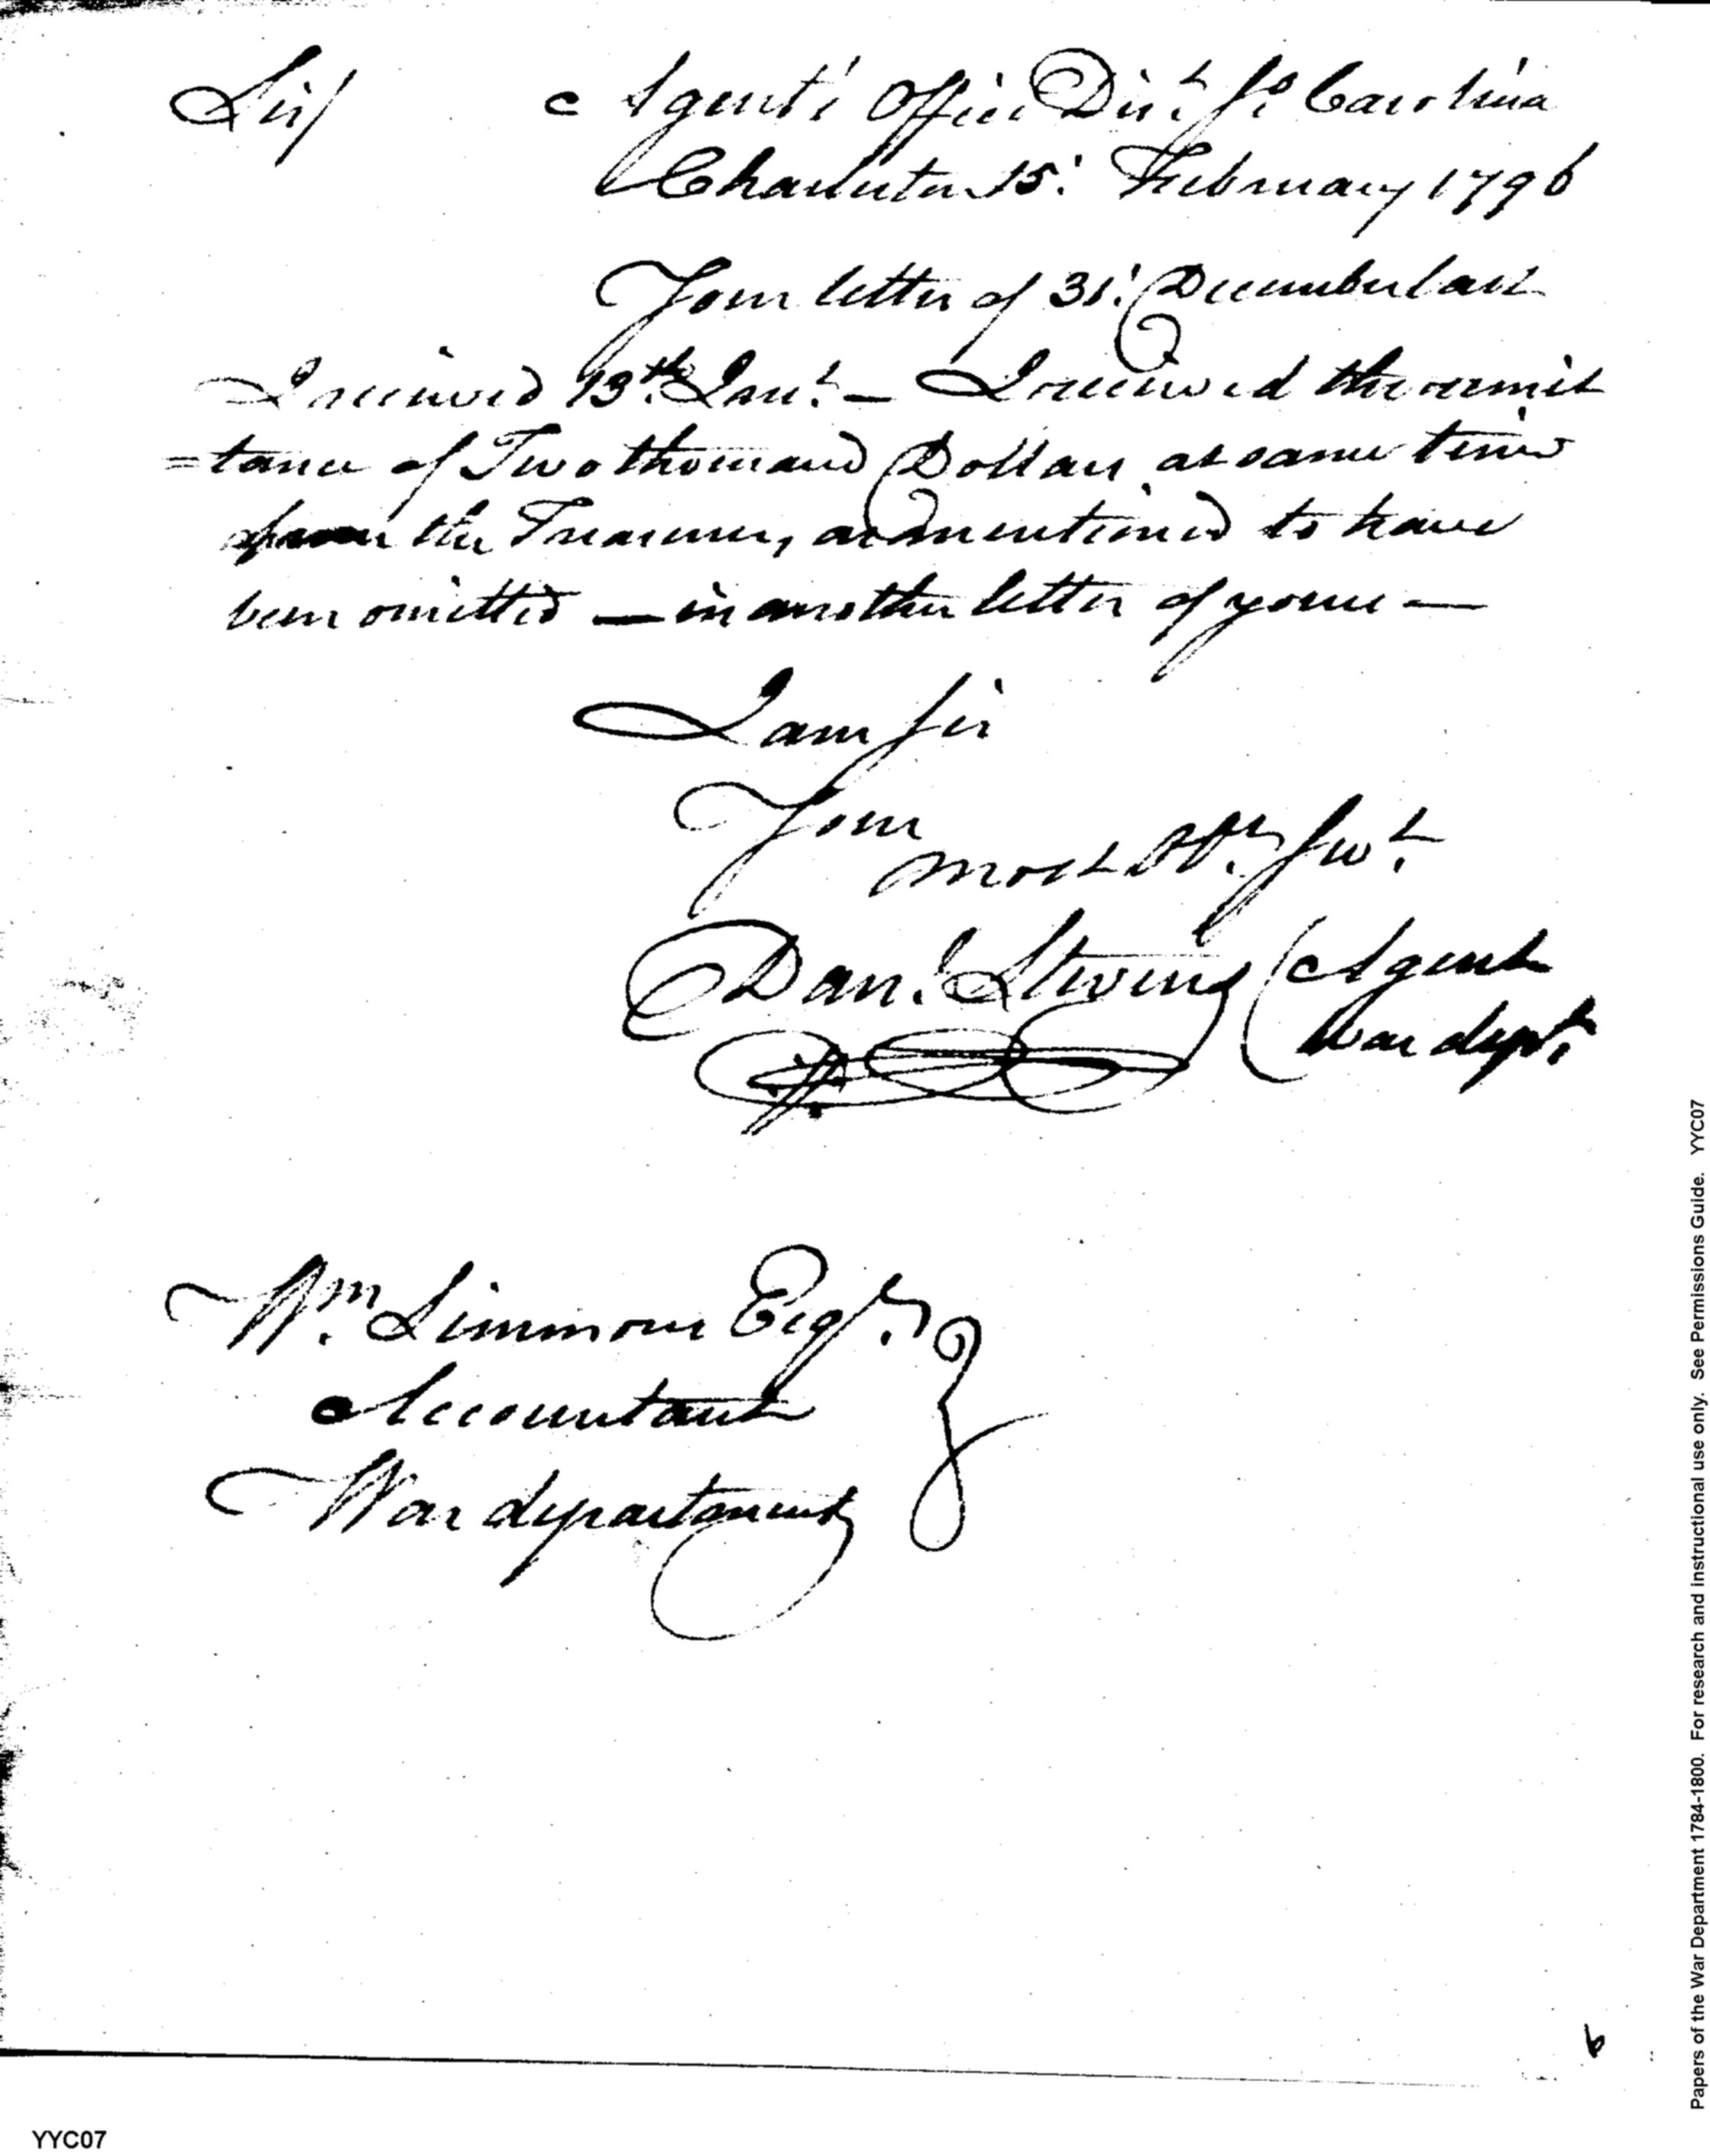 Sir/ Agent's Office Dist. So. Carolina
Charleston 15: February 1796
Your letter of 31: December last
I received 13th. Inst. — I received the remit
=tance of Two thousand Dollars at same time
from the Treasurer, as mentioned to have
been omitted — in another letter of yours —
I am Sir
Your
most Ob. Servt.
Danl. Stevens Agent
War dept.
Wm. Simmons Esqr.
Accountant
War department
6
YYC07
Papers of the War Department 1784-1800. For research and instructional use only. See Permissions Guide. YYC07